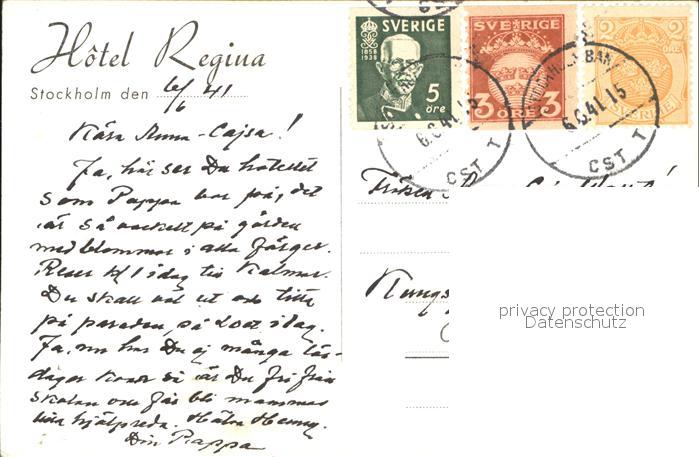 Hôtel Regina
Stockholm den 6/6 41
SVERIGE
1858
1938
5
öre
SVERIGE
3 ÖRE 3
2 2
ÖRE
SVERIGE
6.6.41.15
CST 1
6.6.41.15
CST 1
Kära Anna-Cajsa!
Ja, här ser Du hotellet
som Pappa bor på, det
är så vackert på gården
med blommor i alla färger.
Reser kl 1 idag till Kalmar.
Du skall väl ut och titta
på paraden på
Ja, nu har Du ej många läs-
dagar kvar så är Du fri från
skolan och får bli mammas
lilla hjälpreda. Hälsa Henny.
Din Pappa
Fröken
Kungs
privacy protection
Datenschutz